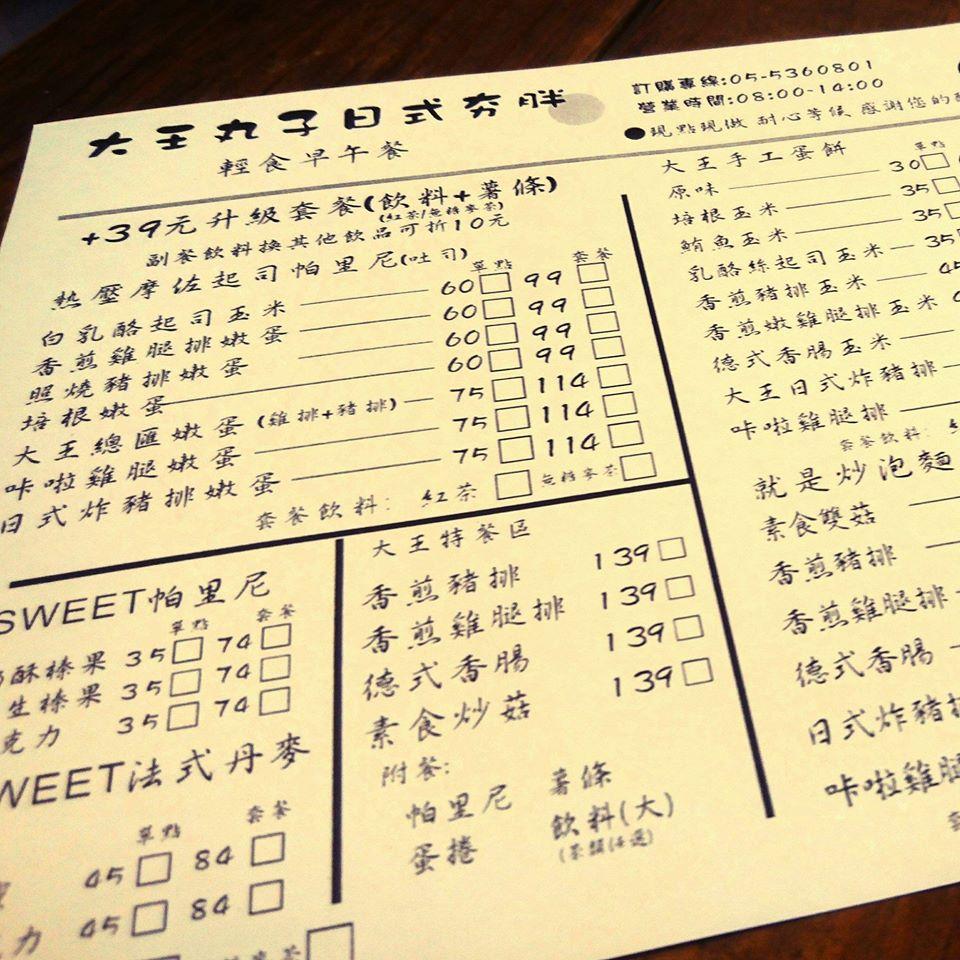 大王丸子日式夯胖
輕食早午餐
訂購專線:05-5360801
營業時間:08:00-14:00
●現點現做 耐心等候 感謝您的
+39元升級套餐(飲料+薯條)
(紅茶/無糖麥茶)
副餐飲料換其他飲品可折10元
熱壓摩佐起司帕里尼(吐司) 單點 套餐
白乳酪起司玉米 60 99
香煎雞腿排嫩蛋 60 99
照燒豬排嫩蛋 60 99
培根嫩蛋 60 99
大王總匯嫩蛋(雞排+豬排) 75 114
咔啦雞腿嫩蛋 75 114
日式炸豬排嫩蛋 75 114
套餐飲料: 紅茶 無糖麥茶
大王手工蛋餅 單點
原味 30
培根玉米 35
鮪魚玉米 35
乳酪絲起司玉米 35
香煎豬排玉米 45
香煎嫩雞腿排玉米
德式香腸玉米
大王日式炸豬排
咔啦雞腿排
套餐飲料:
就是炒泡麵
素食雙菇
香煎豬排
香煎雞腿排
德式香腸
日式炸豬排
咔啦雞腿
SWEET帕里尼
單點 套餐
酥榛果 35 74
生榛果 35 74
克力 35 74
WEET法式丹麥
單點 套餐
45 84
力 45 84
大王特餐區
香煎豬排 139
香煎雞腿排 139
德式香腸 139
素食炒菇 139
附餐:
帕里尼 薯條
蛋捲 飲料(大)
(茶類任選)